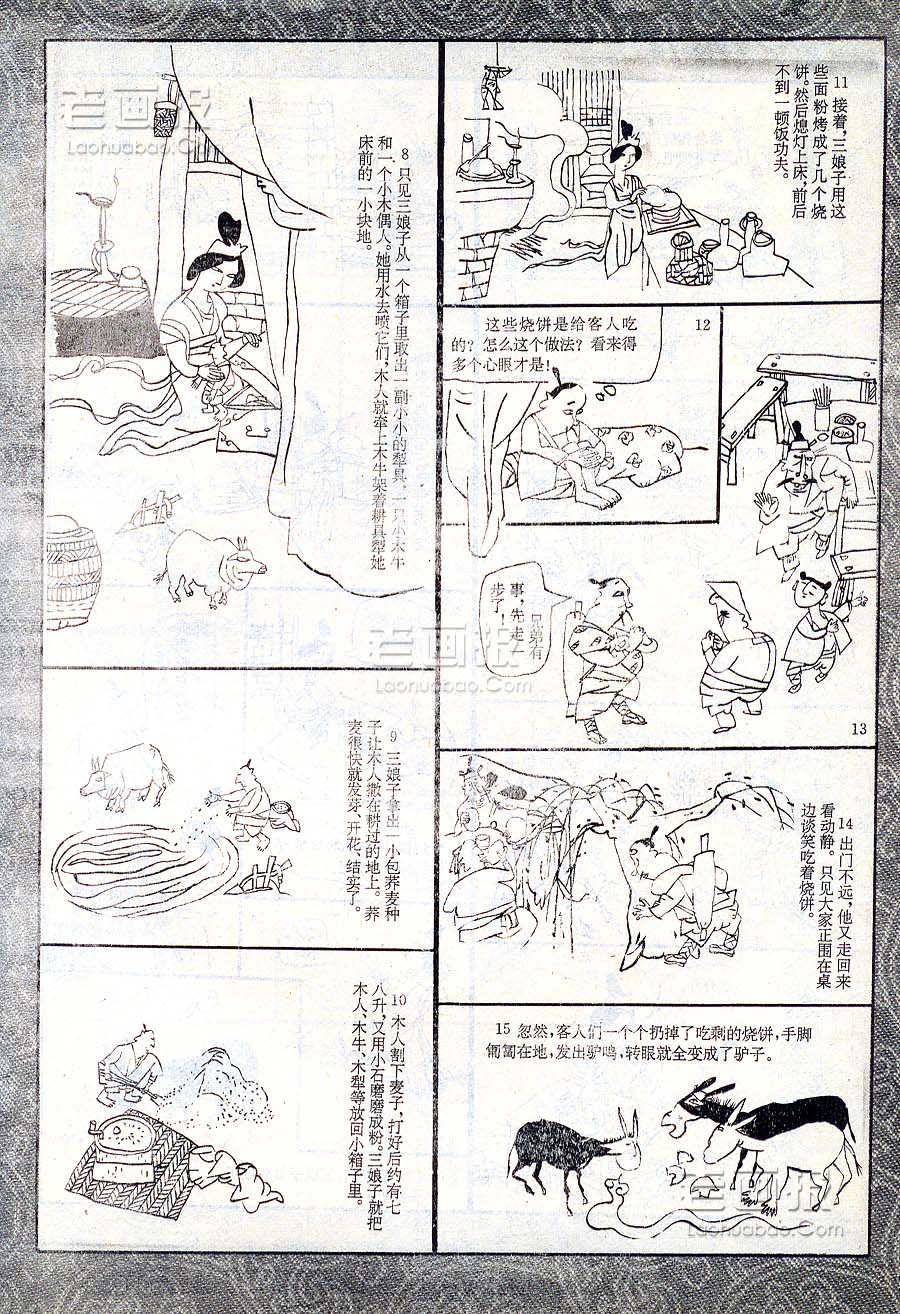 8 只见三娘子从一个箱子里取出一副小小的犁具、一只小木牛
和一个小木偶人。她用水去喷它们，木人就牵上木牛架着耕具犁她
床前的一小块地。
9 三娘子拿出一小包荞麦种
子让木人撒在耕过的地上。荞
麦很快就发芽、开花、结实了。
10 木人割下麦子，打好后约有七
八升，又用小石磨磨成粉。三娘子就把
木人、木牛、木犁等放回小箱子里。
11 接着，三娘子用这
些面粉烤成了几个烧
饼。然后熄灯上床，前后
不到一顿饭功夫。
12
这些烧饼是给客人吃
的？怎么这个做法？看来得
多个心眼才是！
兄弟有
事，先走一
步了！
13
14 出门不远，他又走回来
看动静。只见大家正围在桌
边谈笑吃着烧饼。
15 忽然，客人们一个个扔掉了吃剩的烧饼，手脚
匍匐在地，发出驴鸣，转眼就全变成了驴子。
老画报
Laohuabao.Com
老画报
Laohuabao.Com
老画报
Laohuabao.Com
老画报
Laohuabao.Com